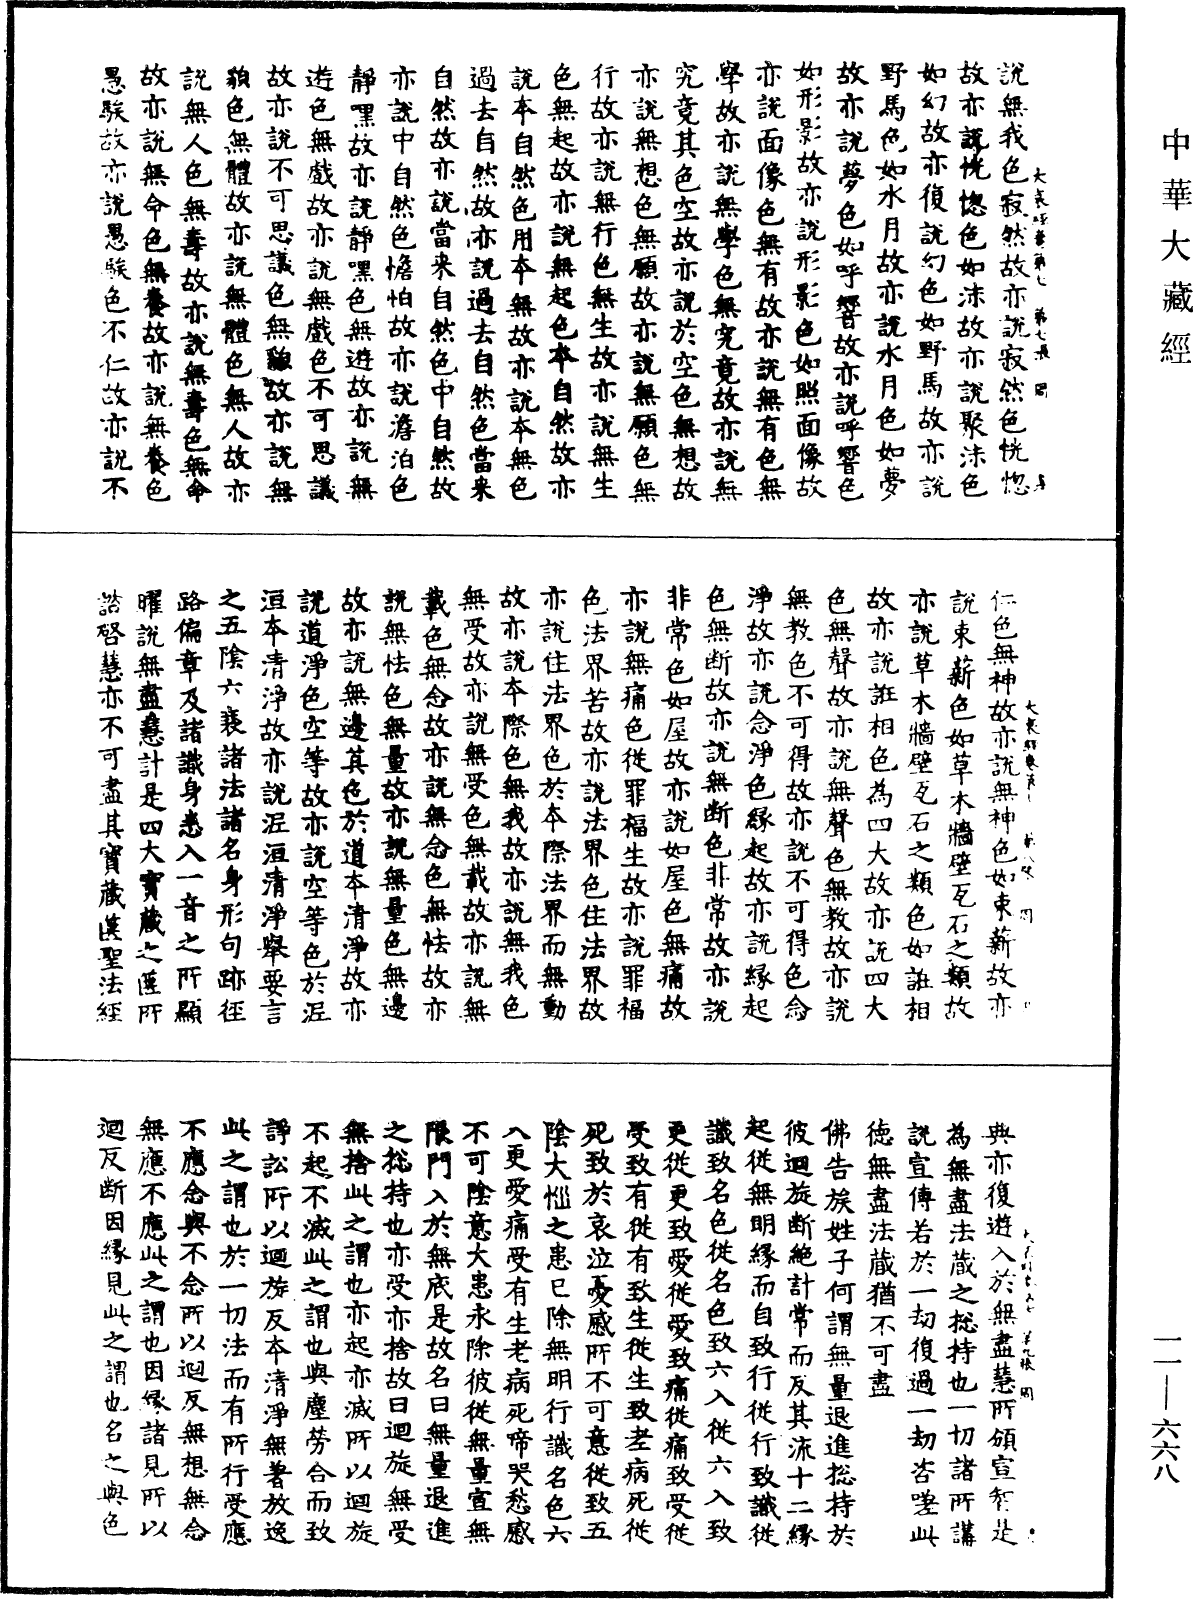 中華大藏經
說無我色寂然故亦說寂然色恍惚
故亦說恍惚色如沫故亦說聚沫色
如幻故亦復說幻色如野馬故亦說
野馬色如水月故亦說水月色如夢
故亦說夢色如呼響故亦說呼響色
如形影故亦說形影色如照面像故
亦說面像色無有故亦說無有色無
學故亦說無學色無究竟故亦說無
究竟其色空故亦說於空色無想故
亦說無想色無願故亦說無願色無
行故亦說無行色無生故亦說無生
色無起故亦說無起色本自然故亦
說本自然色用本無故亦說本無色
過去自然故亦說過去自然色當來
自然故亦說當來自然色中自然故
亦說中自然色憺怕故亦說澹泊色
靜嘿故亦說靜嘿色無遊故亦說無
遊色無戲故亦說無戲色不可思議
故亦說不可思議色無貌故亦說無
貌色無體故亦說無體色無人故亦
說無人色無壽故亦說無壽色無命
故亦說無命色無養故亦說無養色
愚騃故亦說愚騃色不仁故亦說不
仁色無神故亦說無神色如束薪故亦
說束薪色如草木牆壁瓦石之類故
亦說草木牆壁瓦石之類色如誑相
故亦說誑相色為四大故亦說四大
色無聲故亦說無聲色無教故亦說
無教色不可得故亦說不可得色念
淨故亦說念淨色緣起故亦說緣起
色無斷故亦說無斷色非常故亦說
非常色如屋故亦說如屋色無痛故
亦說無痛色從罪福生故亦說罪福
色法界苦故亦說法界色住法界故
亦說住法界色於本際法界而無動
故亦說本際色無我故亦說無我色
無受故亦說無受色無載故亦說無
載色無念故亦說無念色無怯故亦
說無怯色無量故亦說無量色無邊
故亦說無邊其色於道本清淨故亦
說道淨色空等故亦說空等色於泥
洹本清淨故亦說泥洹清淨舉要言
之五陰六衰諸法諸名身形句跡徑
路偏章及諸識身悉入一音之所顯
曜說無盡慧計是四大寶藏之匱所
諮啓慧亦不可盡其寶藏漢聖法經
典亦復遊入於無盡慧所頒宣智是
為無盡法藏之揔持也一切諸所講
說宣傳若於一劫復過一劫咨嗟此
德無盡法藏猶不可盡
佛告族姓子何謂無量退進揔持於
彼迴旋斷絕計常而反其流十二緣
起從無明緣而自致行從行致識從
識致名色從名色致六入從六入致
更從更致愛從愛致痛從痛致受從
受致有從有致生從生致老病死從
死致於哀泣憂慼所不可意從致五
陰大惱之患已除無明行識名色六
入更愛痛受有生老病死啼哭愁慼
不可陰意大患永除彼從無量宣無
限門入於無底是故名曰無量退進
之揔持也亦受亦捨故曰迴旋無受
無捨此之謂也亦起亦滅所以迴旋
不起不滅此之謂也與塵勞合而致
諍訟所以迴旋反本清淨無著放逸
此之謂也於一切法而有所行受應
不應念與不念所以迴反無想無念
無應不應此之謂也因緣諸見所以
迴反斷因緣見此之謂也名之與色
一一—六六八